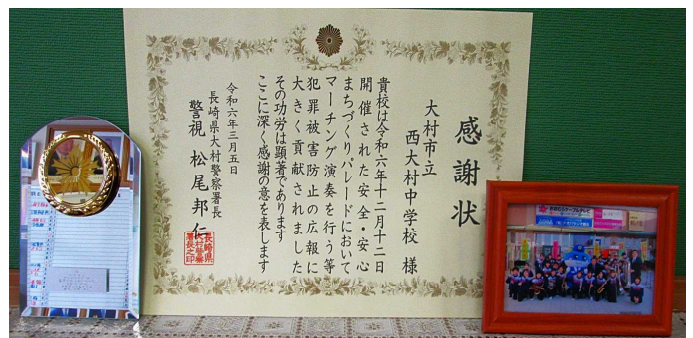 感謝状
大村市立
西大村中学校 様
貴校は令和六年十二月十二日
開催された安全・安心
まちづくりパレードにおいて
マーチング演奏を行う等
犯罪被害防止の広報に
大きく貢献されました
その功労は顕著であります
ここに深く感謝の意を表します
令和六年三月五日
長崎県大村警察署長
警視 松尾邦仁
長崎県
大村警察
署長之印